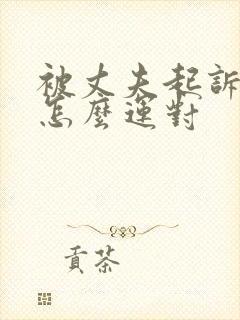 被丈夫起訴
怎麼運對
貢茶